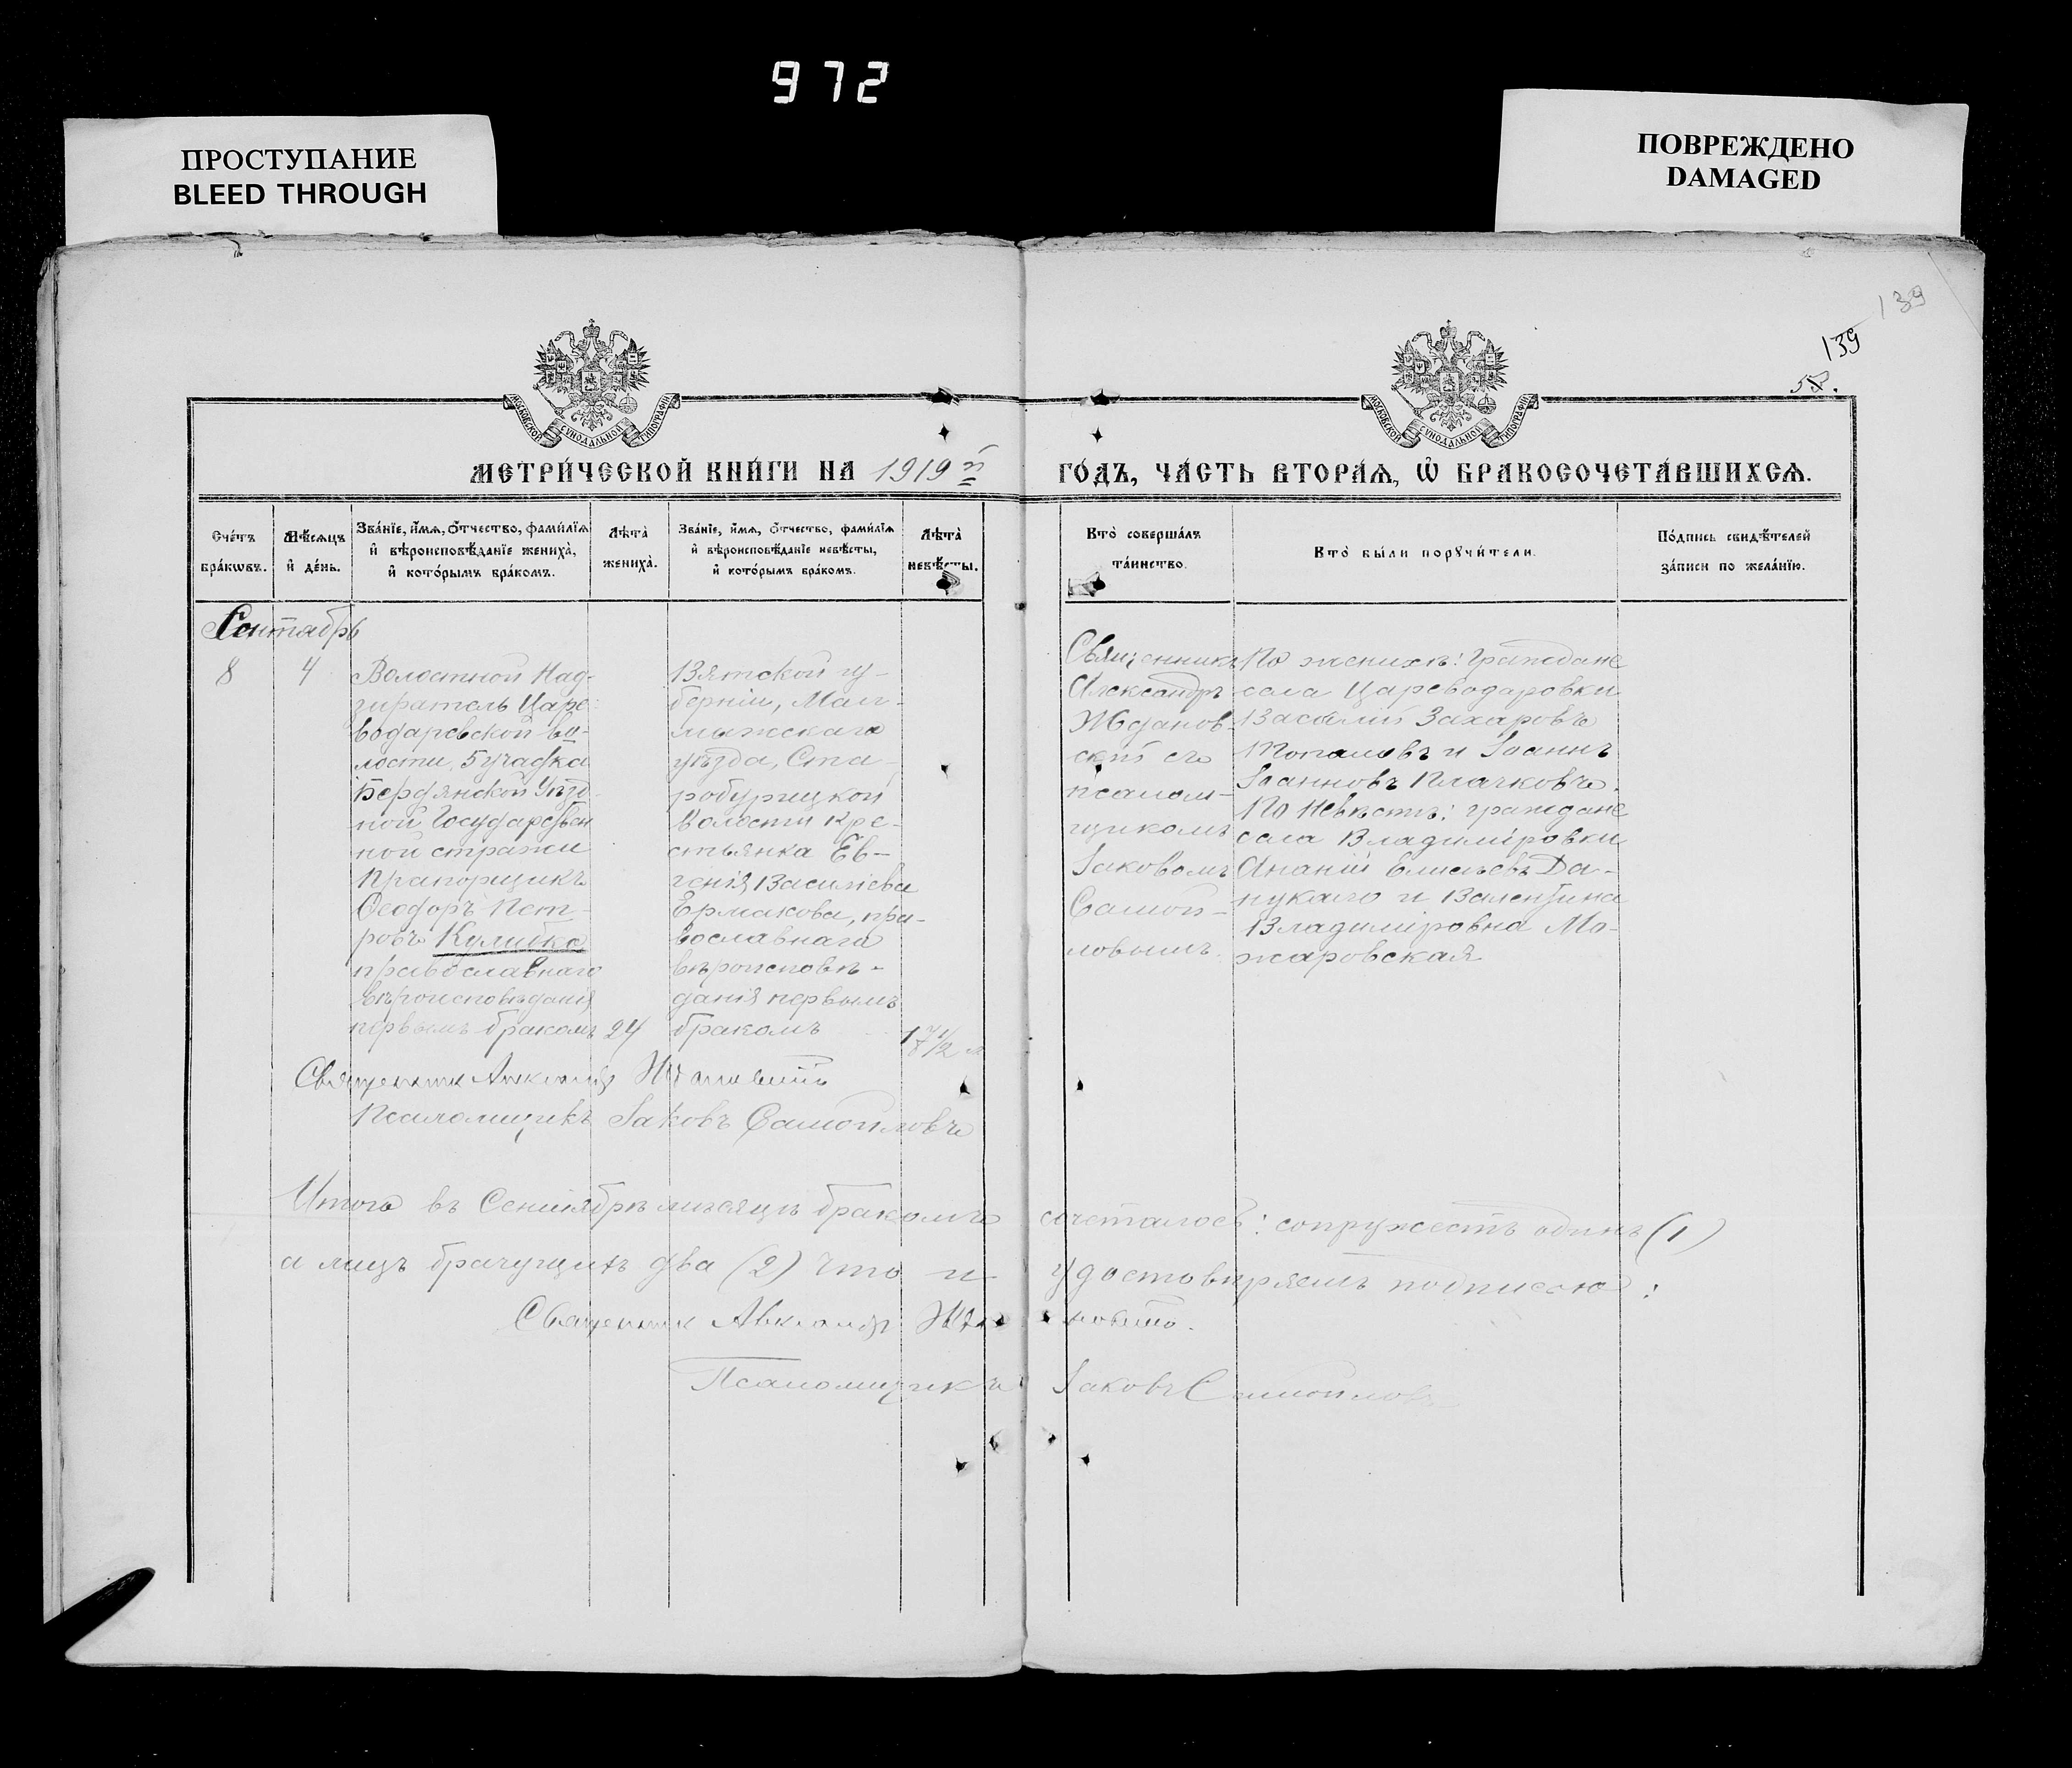 972
ПРОСТУПАНИЕ
BLEED THROUGH
ПОВРЕЖДЕНО
DAMAGED
139
139
МОСКОВСКОЙ СУНОДАЛЬНОЙ ТИПОГРАФІИ
МОСКОВСКОЙ СУНОДАЛЬНОЙ ТИПОГРАФІИ
МЕТРИ́ЧЕСКОЙ КНИ́ГИ НА 1919 й
ГО́ДЪ, ЧА́СТЬ ВТОРА́Ѧ, Ѡ БРАКОСОЧЕТА́ВШИХСѦ.
Сче́тъ
бра́кѡвъ.
Мѣ́сѧцъ
и де́нь.
Зва́нїе, и́мѧ, о́тчество, фами́лїѧ
и вѣроисповѣ́данїе жениха̀,
и кото́рымъ бра́комъ.
Лѣта̀
жениха̀.
Зва́нїе, и́мѧ, о́тчество, фами́лїѧ
и вѣроисповѣ́данїе невѣ́сты,
и кото́рымъ бра́комъ.
Лѣта̀
невѣ́сты.
Кто̀ соверша́лъ
та́инство.
Кто̀ бы́ли порꙋчи́тели.
По́дпись свидѣ́телей
за́писи по жела́нїю.
Сентябрь
8
4
Волостной Над-
зиратель Царе-
водаровской во-
лости, 5 участка
Бердянской Уѣзд-
ной Государствен
ной стражи
Прапорщикъ
Ѳеодоръ Пет-
ровъ Кулибка
православнаго
вѣроисповѣданія
первымъ бракомъ
24
Вятской гу-
берніи, Мал-
мыжскаго
уѣзда, Ста-
робурецкой
Волости кре-
стьянка Ев-
генія Васильева
Ермакова, пра-
вославнаго
вѣроисповѣ-
данія первымъ
бракомъ
17½ л
Священникъ
Александръ
Жданов-
скій съ
псалом-
щикомъ
Іаковомъ
Самой-
ловымъ
По женихѣ: граждане
села Цареводаровки
Василій Захаровъ
и Іоаннъ
Іоанновъ Плачковъ.
По Невѣстѣ: граждане
села Владиміровки
Ананій Елисѣевъ Да-
цукало и Валентина
Владиміровна Мо-
жаровская
Священник Александр Ждановский
Псаломщикъ Іаковъ Самойловъ
Итого въ Сентябрѣ мѣсяцѣ бракомъ сочеталось: супружествъ одинъ (1)
а лицъ брачущихъ два (2) что и удостовѣряемъ подписью:
Священник Александр Ждановский.
Псаломщикъ Іаковъ Самойловъ